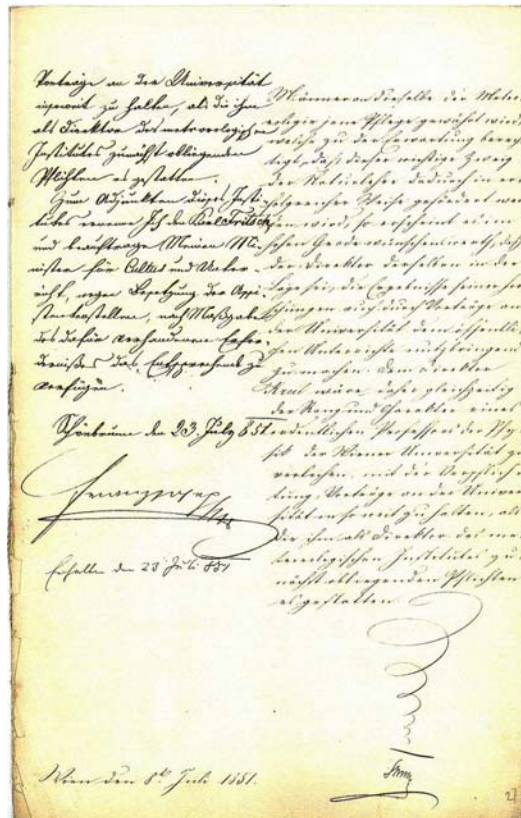 Vorträge an der Universität
insoweit zu halten, als die ihm
als Direktor des meteorologischen
Institutes zunächst obliegenden
Pflichten es gestatten.
Zum Adjunkten dieses Insti-
tutes ernenne Ich den Karl Fritsch
und beauftrage Meinen Mi-
nister für Cultus und Unter-
richt, wegen Besetzung der Assi-
stentenstellen, nach Maßgabe
des dafür vorhandenen Erfor-
dernißes das Entsprechende zu
verfügen.
Schönbrunn den 23. July 851.
Franz Joseph
Erhalten den 23 Juli 851
Wien den 8t Juli 1851.
Männer an derselbe der Meteo-
rologie jene Pflege gewährt wird,
welche zu der Erwartung berech-
tigt, daß dieser wichtige Zweig
der Naturlehre dadurch in er-
folgreicher Weise gefördert wer-
den wird, so erscheint es im
hohen Grade wünschenswerth, daß
der Direktor derselben in der
Lage sei, die Ergebnisse seiner For-
schungen auch durch Vorträge an
der Universität dem öffentli-
chen Unterrichte nutzbringend
zu machen. Dem Direktor
Kreil wäre daher gleichzeitig
der Rang und Charakter eines
ordentlichen Professors der Phy-
sik der Wiener Universität zu
verleihen, mit der Verpflich-
tung, Vorträge an der Univer-
sität in so weit zu halten, als
die ihm als Direktor des me-
teorologischen Institutes zu-
nächst obliegenden Pflichten
es gestatten.
Thun
27